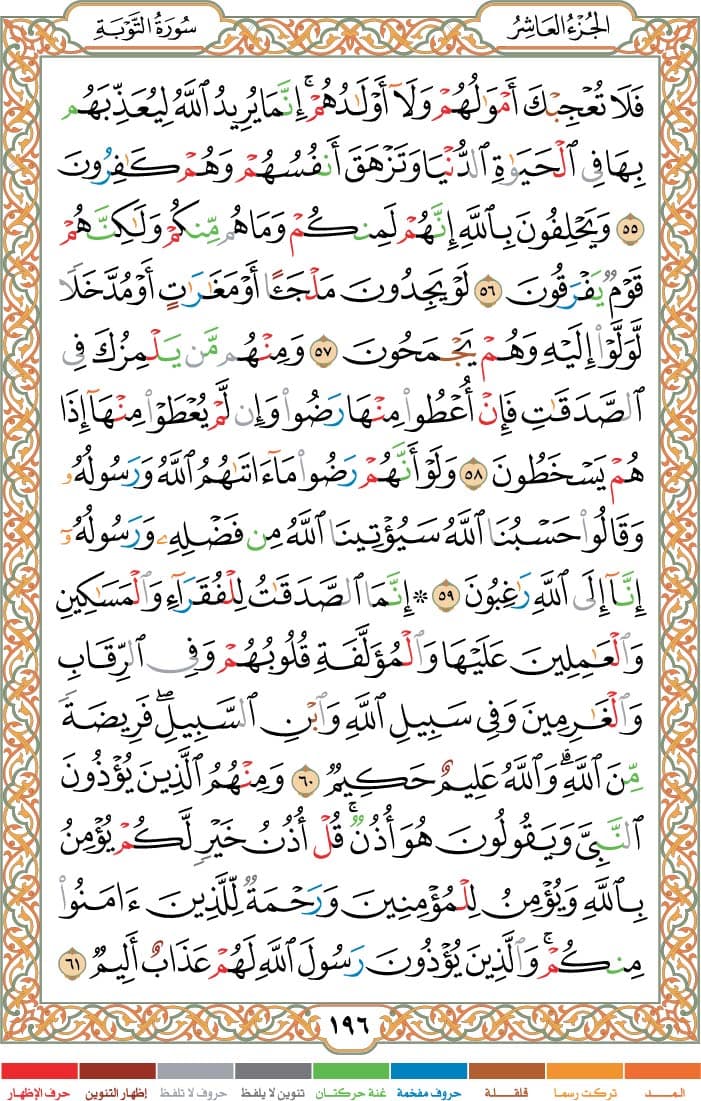 الجُزْءُ العَاشِرُ
سُورَةُ التَّوْبَةِ
فَلَا تُعْجِبْكَ أَمْوَٰلُهُمْ وَلَآ أَوْلَٰدُهُمْ ۚ إِنَّمَا يُرِيدُ ٱللَّهُ لِيُعَذِّبَهُم
بِهَا فِى ٱلْحَيَوٰةِ ٱلدُّنْيَا وَتَزْهَقَ أَنفُسُهُمْ وَهُمْ كَٰفِرُونَ
٥٥ وَيَحْلِفُونَ بِٱللَّهِ إِنَّهُمْ لَمِنكُمْ وَمَا هُم مِّنكُمْ وَلَٰكِنَّهُمْ
قَوْمٌ يَفْرَقُونَ ٥٦ لَوْ يَجِدُونَ مَلْجَـًٔا أَوْ مَغَٰرَٰتٍ أَوْ مُدَّخَلًا
لَّوَلَّوْا۟ إِلَيْهِ وَهُمْ يَجْمَحُونَ ٥٧ وَمِنْهُم مَّن يَلْمِزُكَ فِى
ٱلصَّدَقَٰتِ فَإِنْ أُعْطُوا۟ مِنْهَا رَضُوا۟ وَإِن لَّمْ يُعْطَوْا۟ مِنْهَآ إِذَا
هُمْ يَسْخَطُونَ ٥٨ وَلَوْ أَنَّهُمْ رَضُوا۟ مَآ ءَاتَىٰهُمُ ٱللَّهُ وَرَسُولُهُۥ
وَقَالُوا۟ حَسْبُنَا ٱللَّهُ سَيُؤْتِينَا ٱللَّهُ مِن فَضْلِهِۦ وَرَسُولُهُۥٓ
إِنَّآ إِلَى ٱللَّهِ رَٰغِبُونَ ٥٩ ۞ إِنَّمَا ٱلصَّدَقَٰتُ لِلْفُقَرَآءِ وَٱلْمَسَٰكِينِ
وَٱلْعَٰمِلِينَ عَلَيْهَا وَٱلْمُؤَلَّفَةِ قُلُوبُهُمْ وَفِى ٱلرِّقَابِ
وَٱلْغَٰرِمِينَ وَفِى سَبِيلِ ٱللَّهِ وَٱبْنِ ٱلسَّبِيلِ ۖ فَرِيضَةً
مِّنَ ٱللَّهِ ۗ وَٱللَّهُ عَلِيمٌ حَكِيمٌ ٦٠ وَمِنْهُمُ ٱلَّذِينَ يُؤْذُونَ
ٱلنَّبِىَّ وَيَقُولُونَ هُوَ أُذُنٌ ۚ قُلْ أُذُنُ خَيْرٍ لَّكُمْ يُؤْمِنُ
بِٱللَّهِ وَيُؤْمِنُ لِلْمُؤْمِنِينَ وَرَحْمَةٌ لِّلَّذِينَ ءَامَنُوا۟
مِنكُمْ ۚ وَٱلَّذِينَ يُؤْذُونَ رَسُولَ ٱللَّهِ لَهُمْ عَذَابٌ أَلِيمٌ ٦١
١٩٦
المــــد تركت رسما قلقــلة حروف مفخمة غنة حركتان تنوين لا يلفظ حروف لا تلفظ إظهار التنوين حرف الإظهار